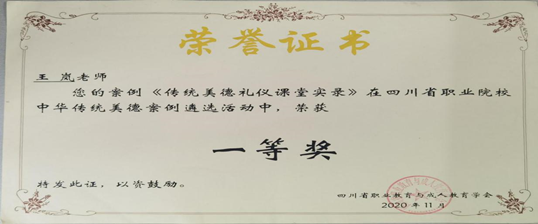 荣誉证书
王岚老师
您的案例《传统美德礼仪课堂实录》在四川省职业院校
中华传统美德案例遴选活动中，荣获
一等奖
特发此证，以资鼓励。
四川省职业教育与成人教育学会
2020年11月